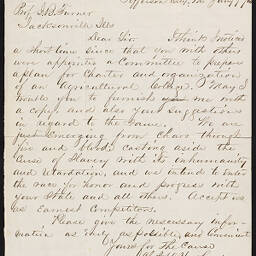 Prof. J.B. Turner
Jacksonville Ills
Dear Sir I think I noticed
a short time since that you with others
were appointed a Committee to prepare
a plan for Charter and organization
of an Agricultural College. May I
trouble you to furnish me with
a copy and also your suggestions
in regard to the same. We are
just emerging from Chaos through
fire and blood, casting aside the
Curse of Slavery with its inhumanity
and retardation, and we intend to enter
the race for honor and progress with
your State and all others. Accept us
as Earnest Competitors.
Please give the necessary infor-
mation as early as possible and convenient
Yours for the Cause